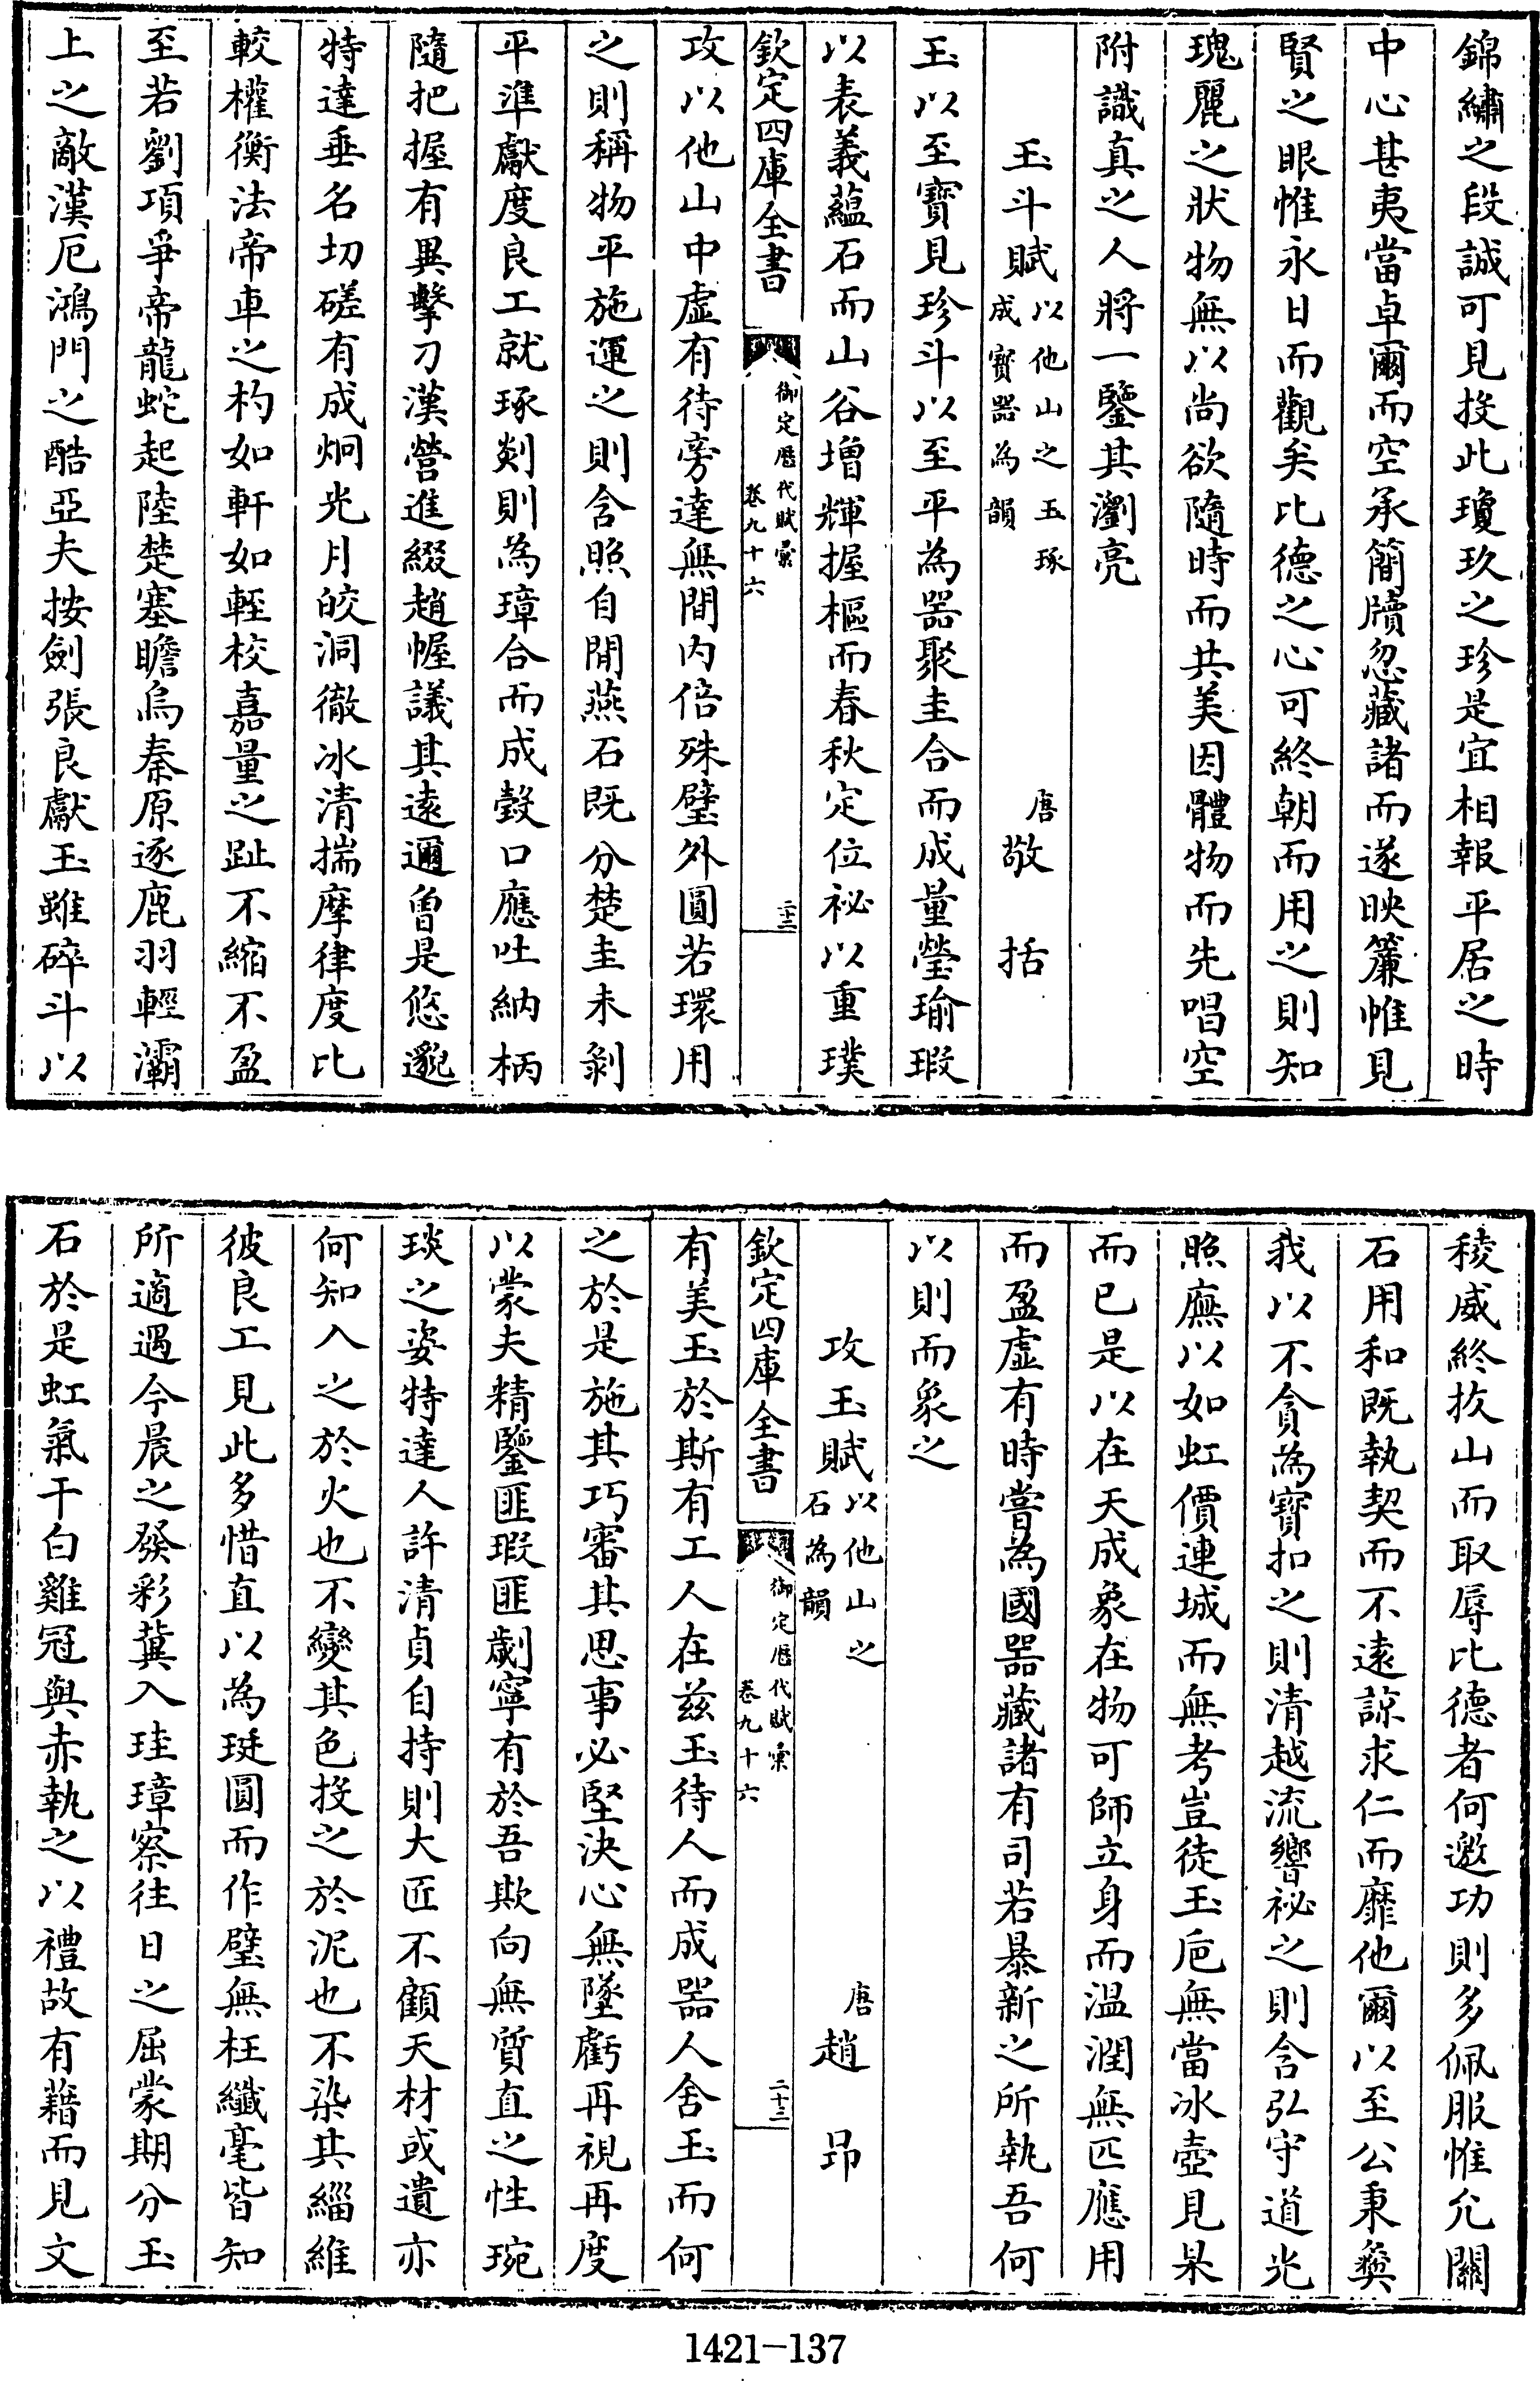 錦繡之段誠可見投此瓊玖之珍是宜相報平居之時
中心甚夷當卓爾而空承簡牘忽藏諸而遂映簾帷見
賢之眼惟永日而觀矣比德之心可終朝而用之則知
瑰麗之狀物無以尚欲隨時而共美因體物而先唱空
附識真之人將一鑒其瀏亮
玉斗賦以他山之玉琢成寶器為韻 唐敬括
玉以至寶見珍斗以至平為器聚圭合而成量瑩瑜瑕
以表義蘊石而山谷增輝握樞而春秋定位祕以重璞
欽定四庫全書 御定歷代賦彙 卷九十六 二十二
攻以他山中虛有待旁達無間內倍殊璧外圓若環用
之則稱物平施運之則含照自閒燕石既分楚圭未剝
平準獻度良工就琢剡則為璋合而成瑴口應吐納柄
隨把握有異擊刀漢營進綴趙幄議其遠邇曾是悠邈
特達垂名切磋有成炯光月皎洞徹冰清揣摩律度比
較權衡法帝車之杓如軒如輊校嘉量之趾不縮不盈
至若劉項爭帝龍蛇起陸楚塞瞻烏秦原逐鹿羽輕灞
上之敵漢厄鴻門之酷亞夫按劍張良獻玉雖碎斗以
稜威終拔山而取辱比德者何邀功則多佩服惟允關
石用和既執契而不遠諒求仁而靡他爾以至公秉彝
我以不貪為寶扣之則清越流響祕之則含弘守道光
照廡以如虹價連城而無考豈徒玉巵無當冰壺見杲
而已是以在天成象在物可師立身而溫潤無匹應用
而盈虛有時嘗為國器藏諸有司若暴新之所執吾何
以則而象之
攻玉賦以他山之石為韻 唐趙昂
欽定四庫全書 御定歷代賦彙 卷九十六 二十三
有美玉於斯有工人在兹玉待人而成器人舍玉而何
之於是施其巧審其思事必堅決心無墜虧再視再度
以蒙夫精鑒匪瑕匪劌寧有於吾欺向無質直之性琬
琰之姿特達人許清貞自持則大匠不顧天材或遺亦
何知入之於火也不變其色投之於泥也不染其緇維
彼良工見此多惜直以為珽圓而作璧無枉纖毫皆知
所適遇今晨之發彩冀入珪璋察往日之屈蒙期分玉
石於是虹氣干白雞冠與赤執之以禮故有藉而見文
1421-137